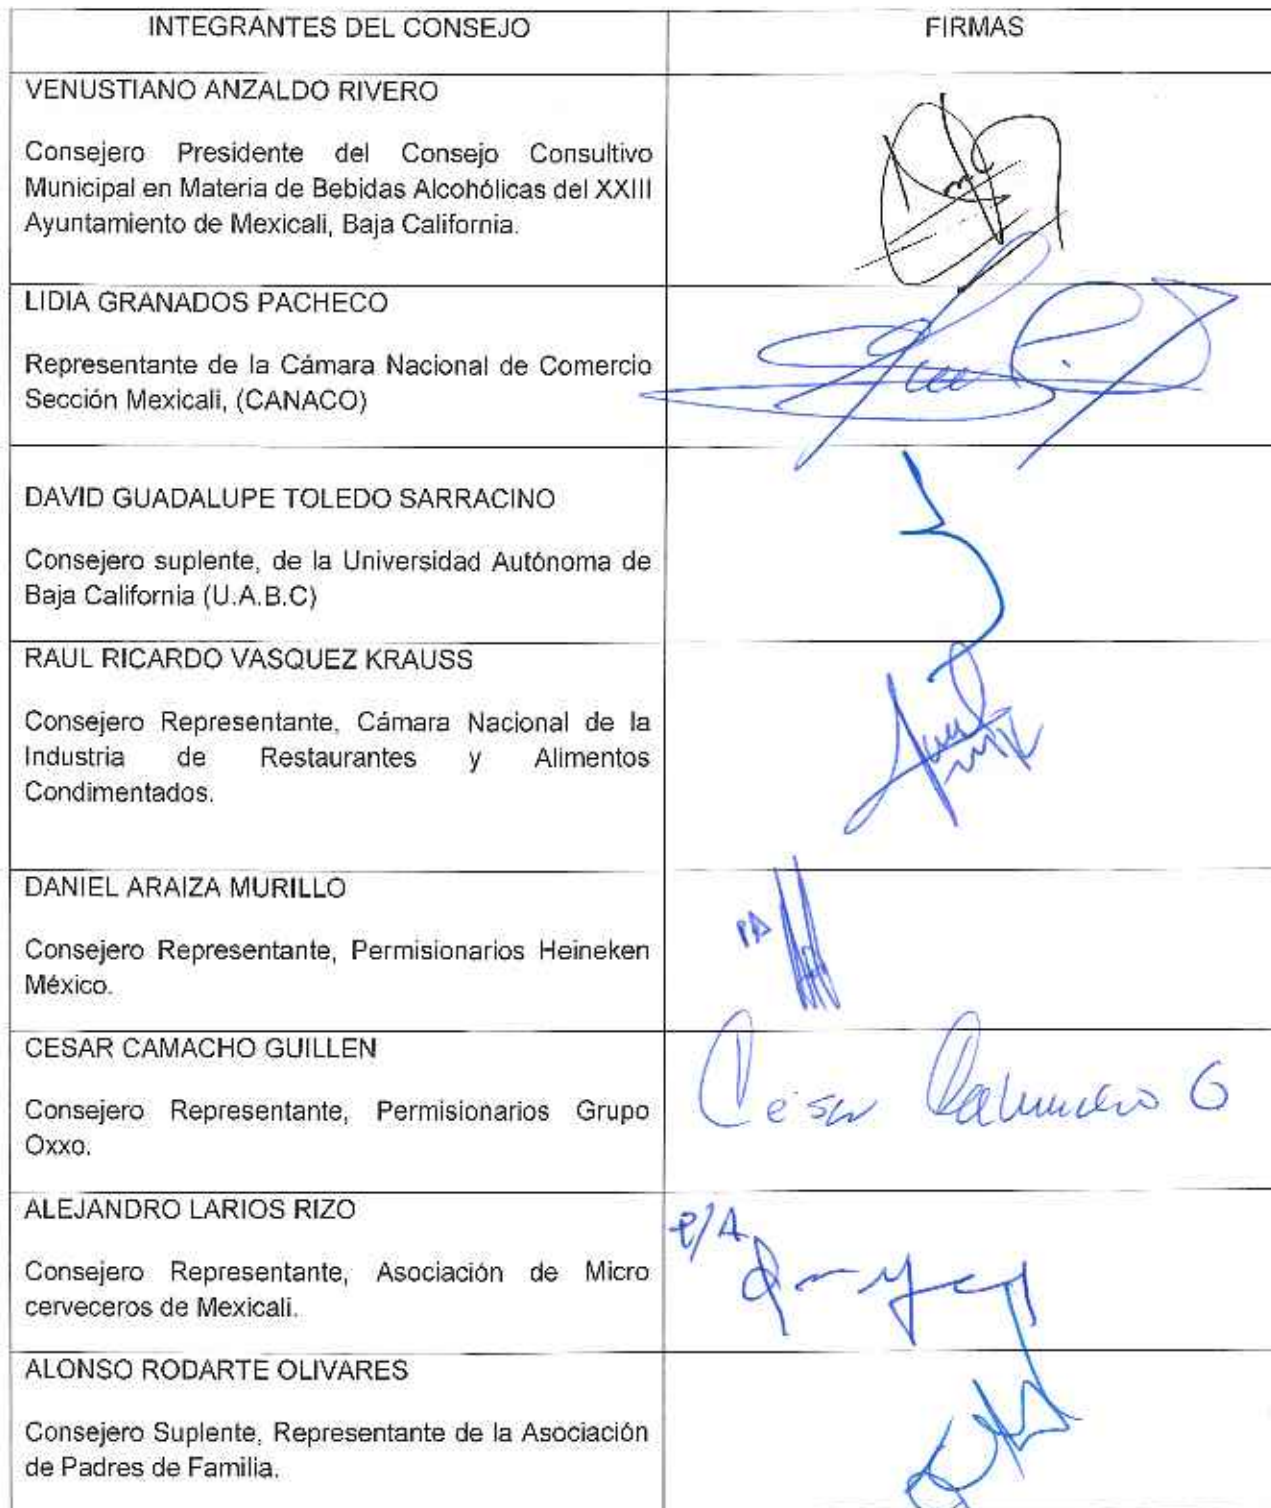 INTEGRANTES DEL CONSEJO
FIRMAS
VENUSTIANO ANZALDO RIVERO
Consejero Presidente del Consejo Consultivo
Municipal en Materia de Bebidas Alcohólicas del XXIII
Ayuntamiento de Mexicali, Baja California.
LIDIA GRANADOS PACHECO
Representante de la Cámara Nacional de Comercio
Sección Mexicali, (CANACO)
DAVID GUADALUPE TOLEDO SARRACINO
Consejero suplente, de la Universidad Autónoma de
Baja California (U.A.B.C)
RAUL RICARDO VASQUEZ KRAUSS
Consejero Representante, Cámara Nacional de la
Industria de Restaurantes y Alimentos
Condimentados.
DANIEL ARAIZA MURILLO
Consejero Representante, Permisionarios Heineken
México.
PA
CESAR CAMACHO GUILLEN
Consejero Representante, Permisionarios Grupo
Oxxo.
César Camacho G
ALEJANDRO LARIOS RIZO
Consejero Representante, Asociación de Micro
cerveceros de Mexicali.
P/A
ALONSO RODARTE OLIVARES
Consejero Suplente, Representante de la Asociación
de Padres de Familia.